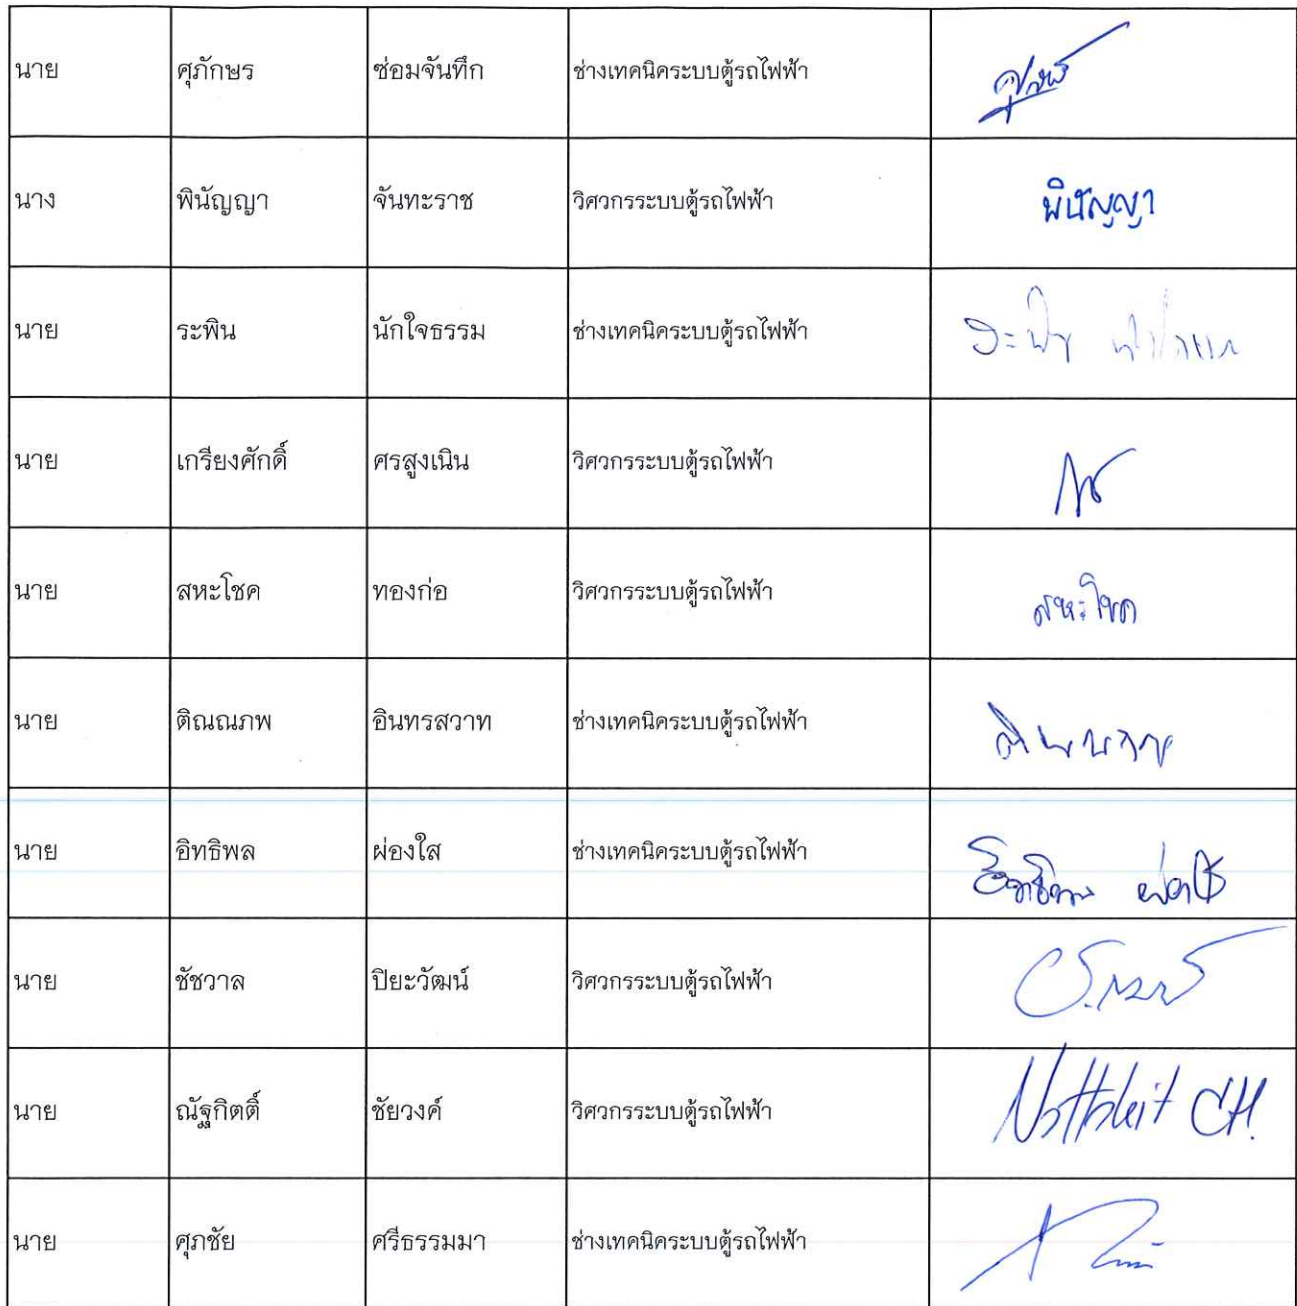 นาย ศุภักษร ซ่อมจันทึก ช่างเทคนิคระบบตู้รถไฟฟ้า
นาง พินัญญา จันทะราช วิศวกรระบบตู้รถไฟฟ้า พินัญญา
นาย ระพิน นักใจธรรม ช่างเทคนิคระบบตู้รถไฟฟ้า
นาย เกรียงศักดิ์ ศรสูงเนิน วิศวกรระบบตู้รถไฟฟ้า
นาย สหะโชค ทองก่อ วิศวกรระบบตู้รถไฟฟ้า สหะโชค
นาย ติณณภพ อินทรสวาท ช่างเทคนิคระบบตู้รถไฟฟ้า
นาย อิทธิพล ผ่องใส ช่างเทคนิคระบบตู้รถไฟฟ้า
นาย ชัชวาล ปิยะวัฒน์ วิศวกรระบบตู้รถไฟฟ้า
นาย ณัฐกิตติ์ ชัยวงค์ วิศวกรระบบตู้รถไฟฟ้า
นาย ศุภชัย ศรีธรรมมา ช่างเทคนิคระบบตู้รถไฟฟ้า